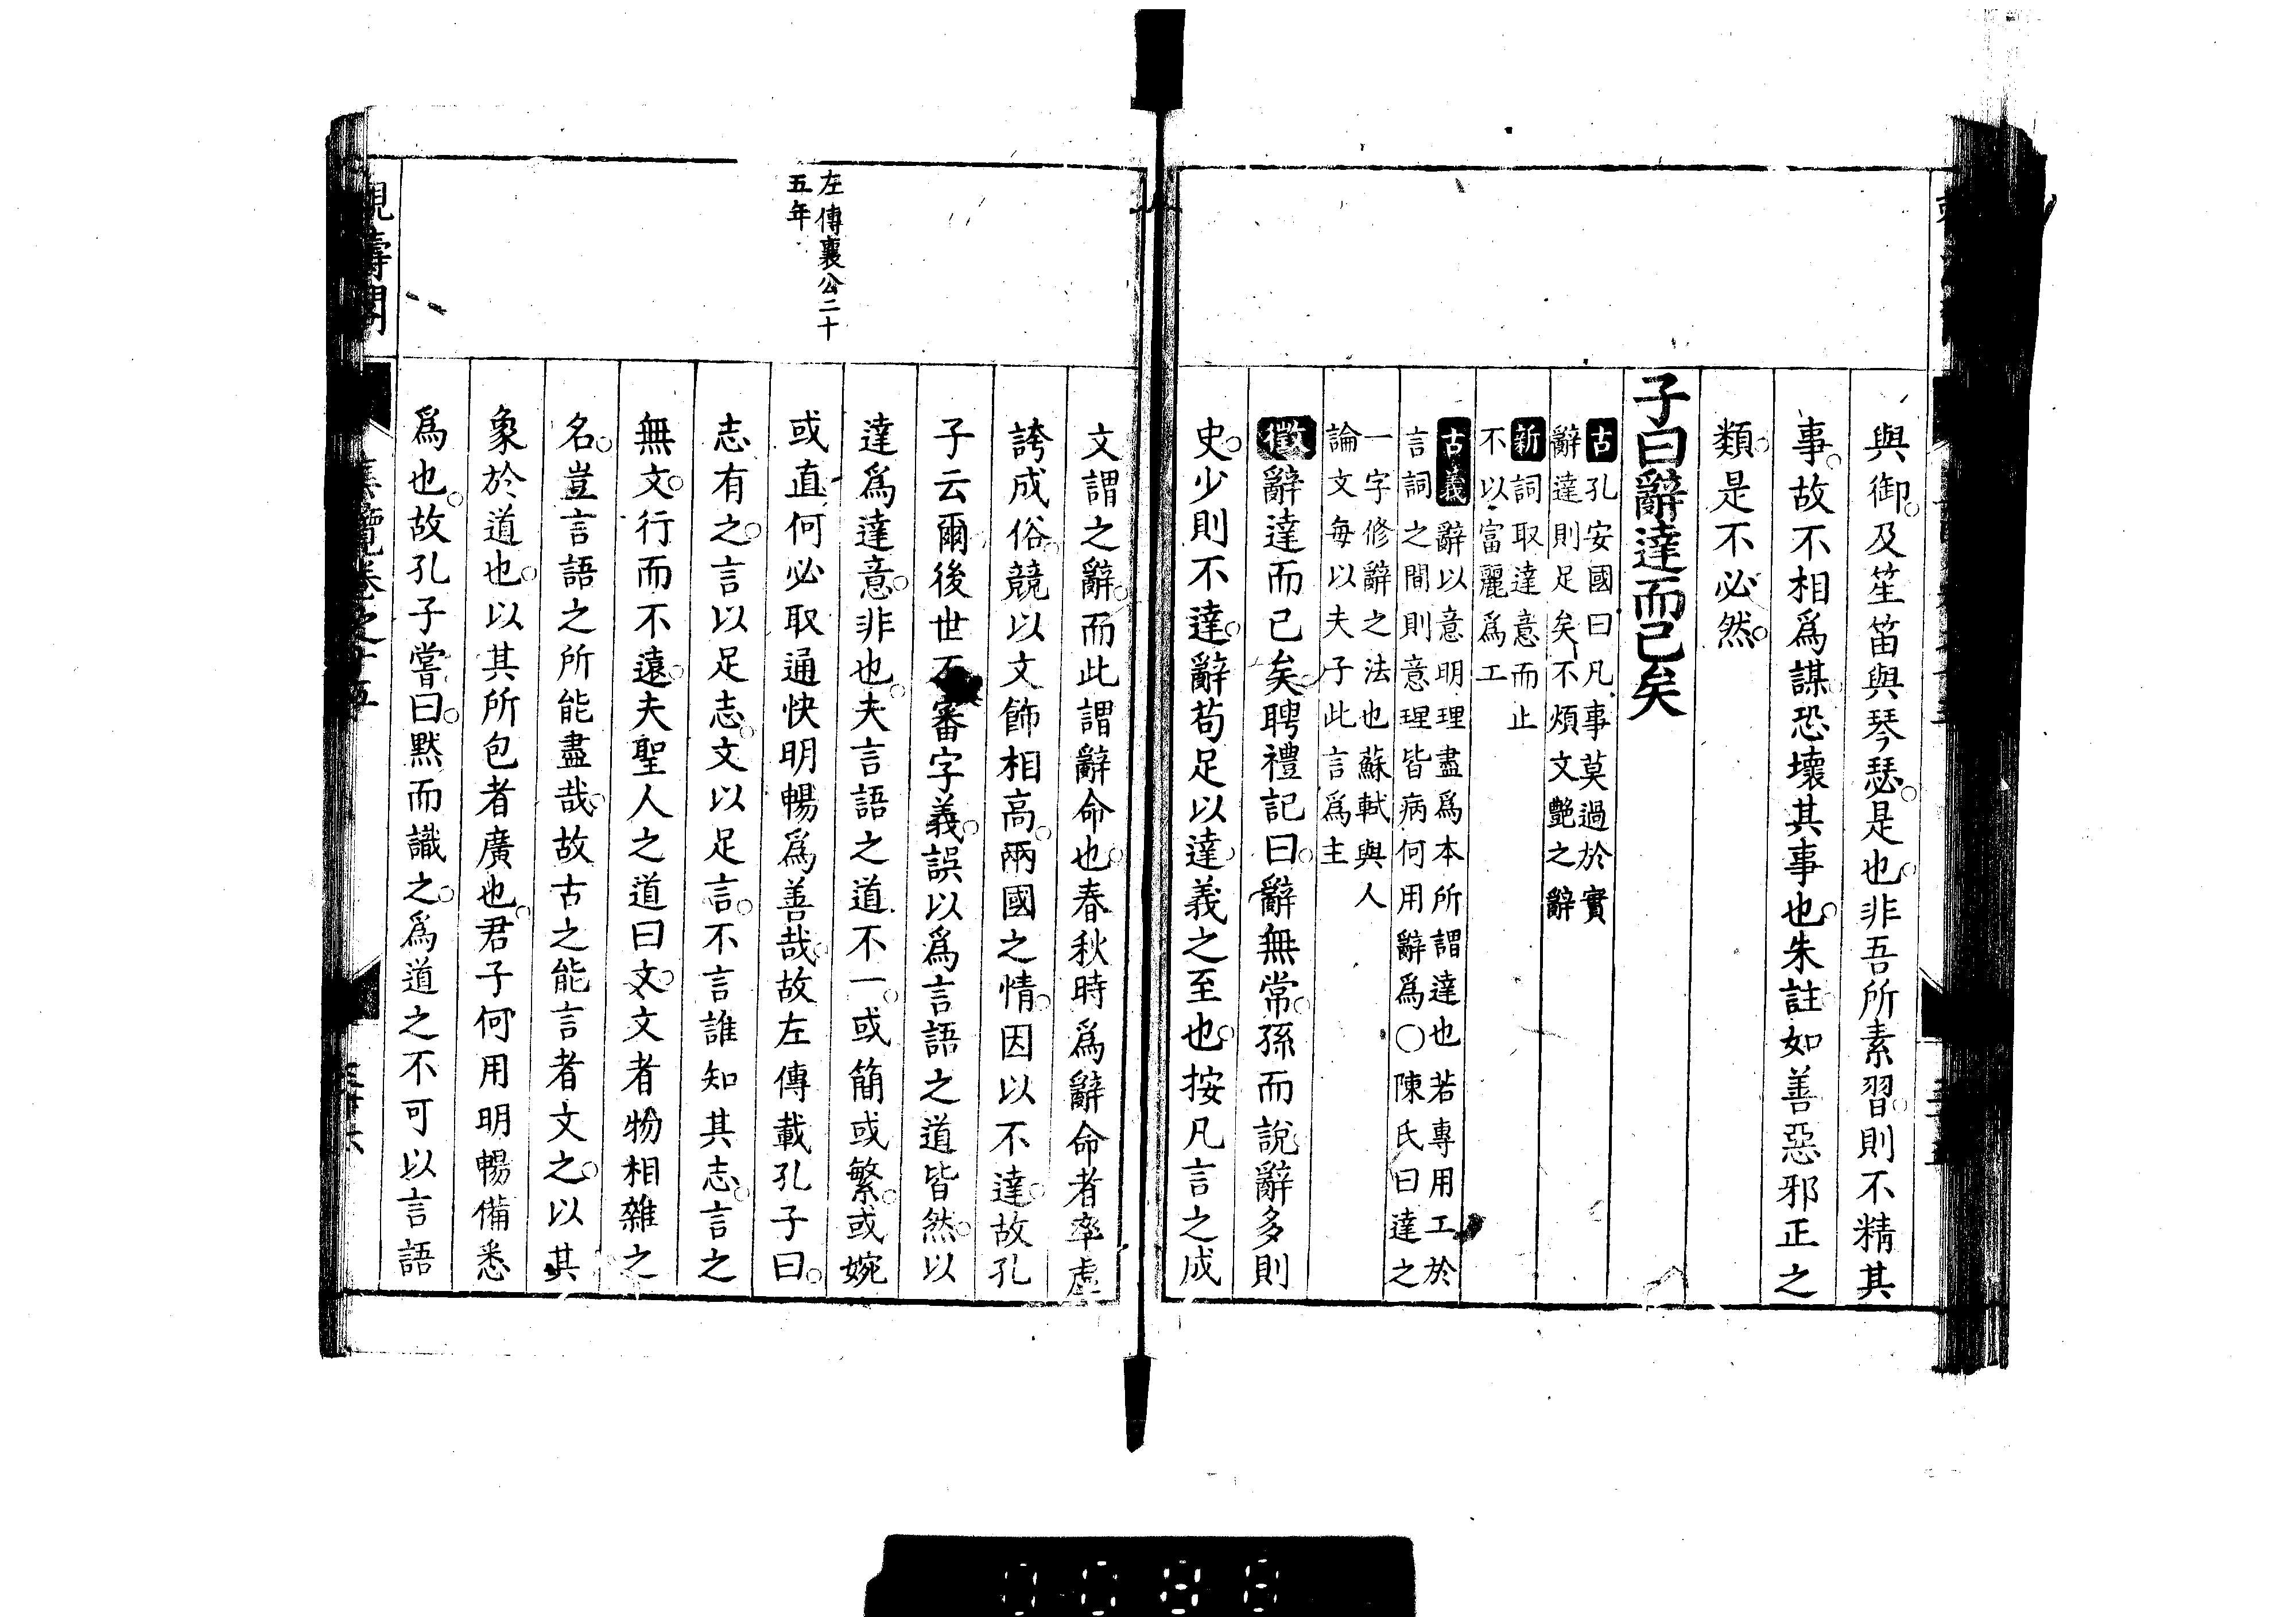 與御及笙笛與琴瑟是也非吾所素習則不精其
事故不相爲謀恐壞其事也朱註如善惡邪正之
類是不必然
子曰辭達而已矣
古孔安國曰凡事莫過於實
辭達則足矣不煩文艷之辭
新詞取達意而止
不以富麗爲工
古義辭以意明理盡爲本所謂達也若專用工於
言詞之間則意理皆病何用辭爲○陳氏曰達之
一字修辭之法也蘇軾與人
論文每以夫子此言爲主
徵辭達而已矣聘禮記曰辭無常孫而說辭多則
史少則不達辭苟足以達義之至也按凡言之成
文謂之辭而此謂辭命也春秋時爲辭命者率虛
誇成俗競以文飾相高兩國之情因以不達故孔
子云爾後世不審字義誤以爲言語之道皆然以
達爲達意非也夫言語之道不一或簡或繁或婉
或直何必取通快明暢爲善哉故左傳載孔子曰
左傳襄公二十
五年
志有之言以足志文以足言不言誰知其志言之
無文行而不遠夫聖人之道曰文文者物相雜之
名豈言語之所能盡哉故古之能言者文之以其
象於道也以其所包者廣也君子何用明暢備悉
爲也故孔子嘗曰默而識之爲道之不可以言語
集覽卷之十五